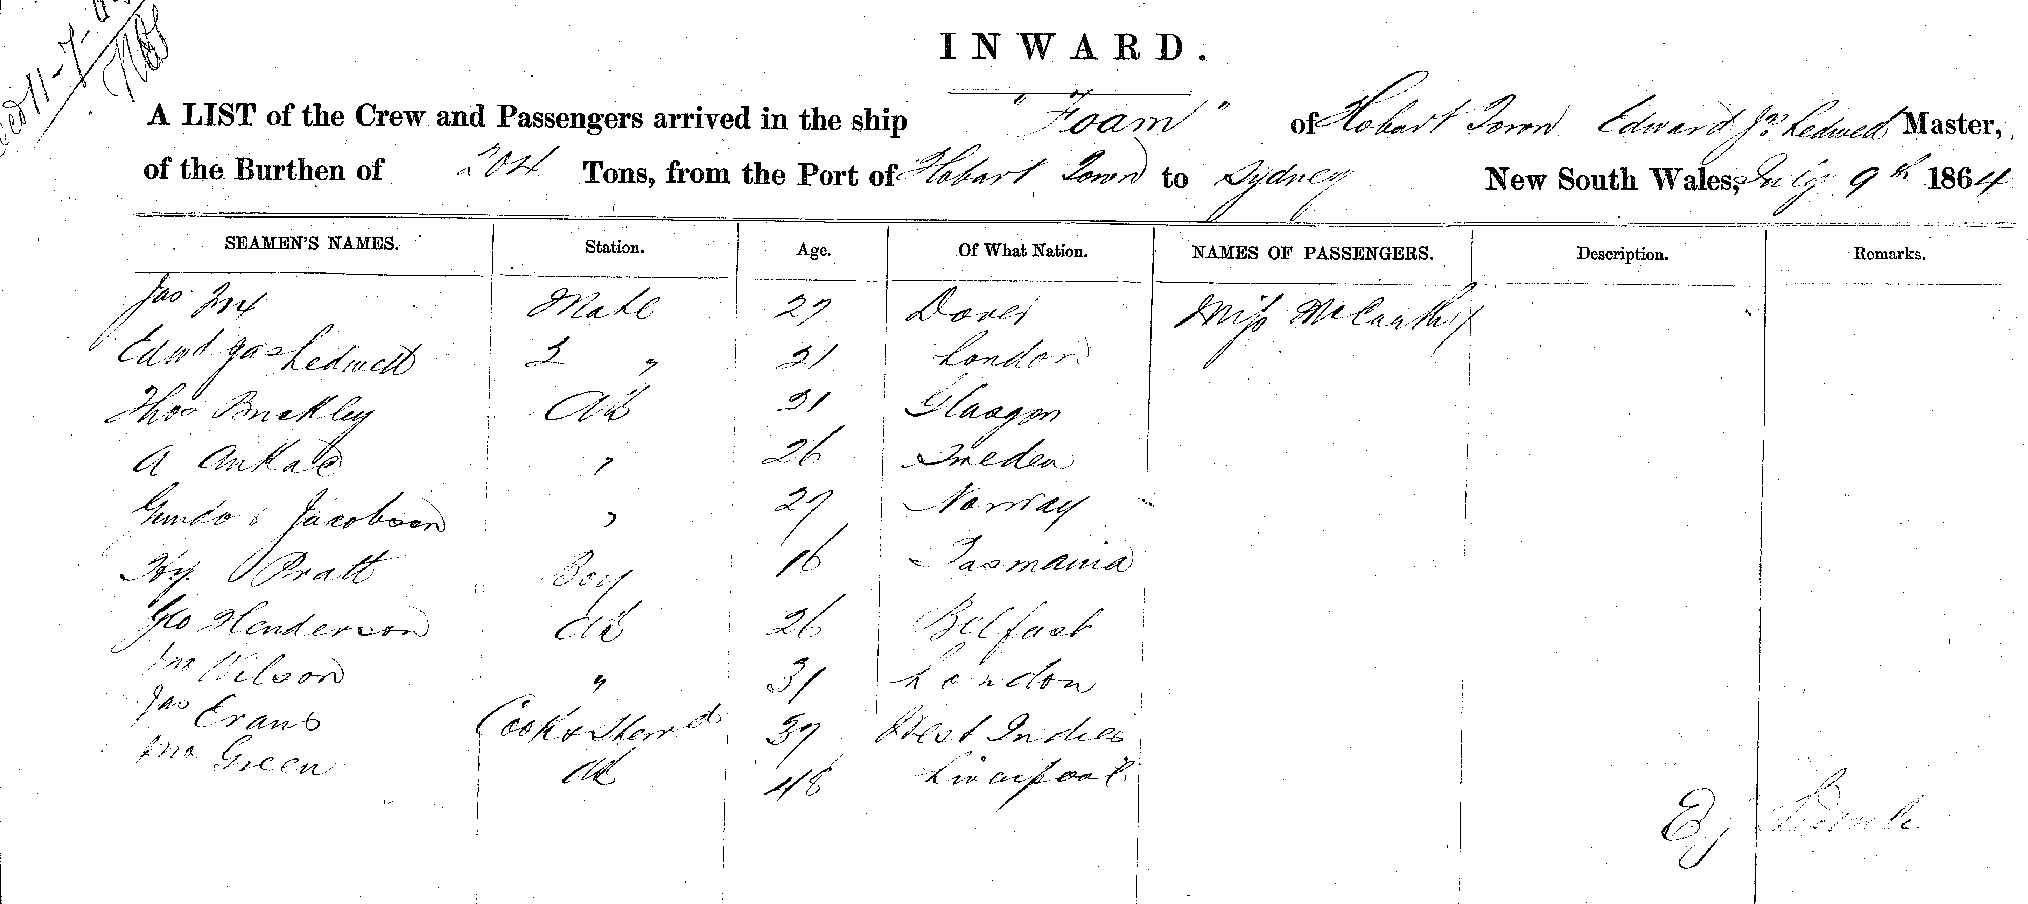 INWARD.
A LIST of the Crew and Passengers arrived in the ship "Foam" of Hobart Town Edward Jas Ledwell Master,
of the Burthen of 204 Tons, from the Port of Hobart Town to Sydney New South Wales, July 9th 1864
SEAMEN'S NAMES. Station. Age. Of What Nation. NAMES OF PASSENGERS. Description. Remarks.
Jas Mate 27 Dover Miss McCarthy
Edwd Jas Ledwell 2 " 21 London
Thos Buckley AB 31 Glasgow
A " 26 Sweden
Jacobson " 27 Norway
Hy Pratt Boy 16 Tasmania
Geo Henderson AB 26 Belfast
Jno Wilson " 31 London
Jas Evans Cook & Stewd 37 West Indies
Jno Green AB 48 Liverpool